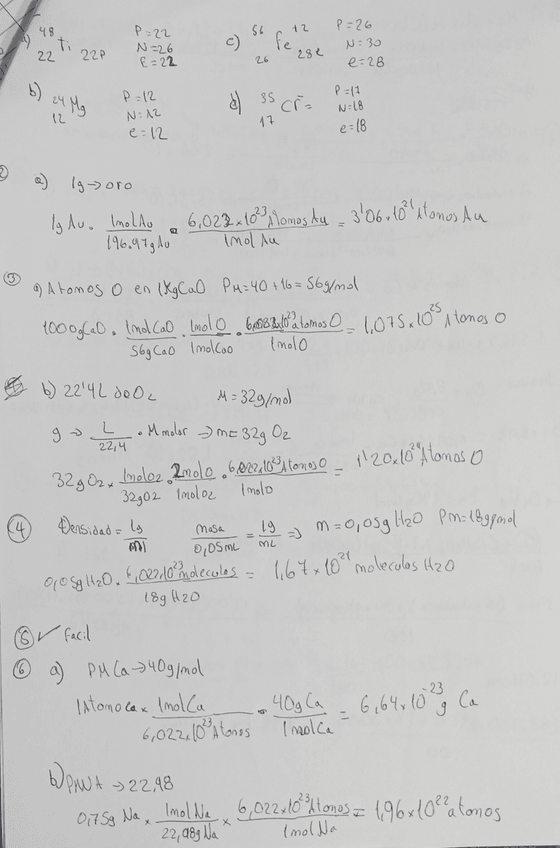 a) 48 22 Ti 22P P=22 N=26 E=22
c) 56 26 Fe +2 28e P=26 N=30 e=28
b) 24 12 Mg P=12 N=12 e=12
d) 35 17 Cl⁻= P=17 N=18 e=18
2 a) 1g → oro
1g Au · 1mol Au / 196.97g Au · 6,022×10²³ Atomos Au / 1mol Au = 3'06×10²¹ Atomos Au
③ a) Atomos O en 1KgCaO PM=40+16=56g/mol
1000gCaO · 1molCaO / 56gCaO · 1molO / 1molCaO · 6,022×10²³ atomos O / 1molO = 1,075×10²⁵ Atomos O
b) 22'4L de O₂ M=32g/mol
g → L / 22,4 · M molar → m=32g O₂
32gO₂ × 1molO2 / 32gO2 · 2molO / 1molO2 · 6,022×10²³ Atomos O / 1molO = 1'20×10²⁴ Atomos O
④ Densidad = 1g / ml masa / 0,05mL = 1g / mL ⇒ m=0,05g H₂O Pm=18g/mol
0,05gH₂O · 6,022×10²³ moleculas / 18g H₂O = 1,67×10²¹ moleculas H₂O
⑤ ✓ Facil
⑥ a) PMCa → 40g/mol
1Atomo Ca × 1mol Ca / 6,022×10²³ Atomos · 40g Ca / 1mol Ca = 6,64×10⁻²³ g Ca
b) PMNA → 22,98
0,75g Na × 1mol Na / 22,98g Na × 6,022×10²³ Atomos / 1mol Na = 1,96×10²² atomos